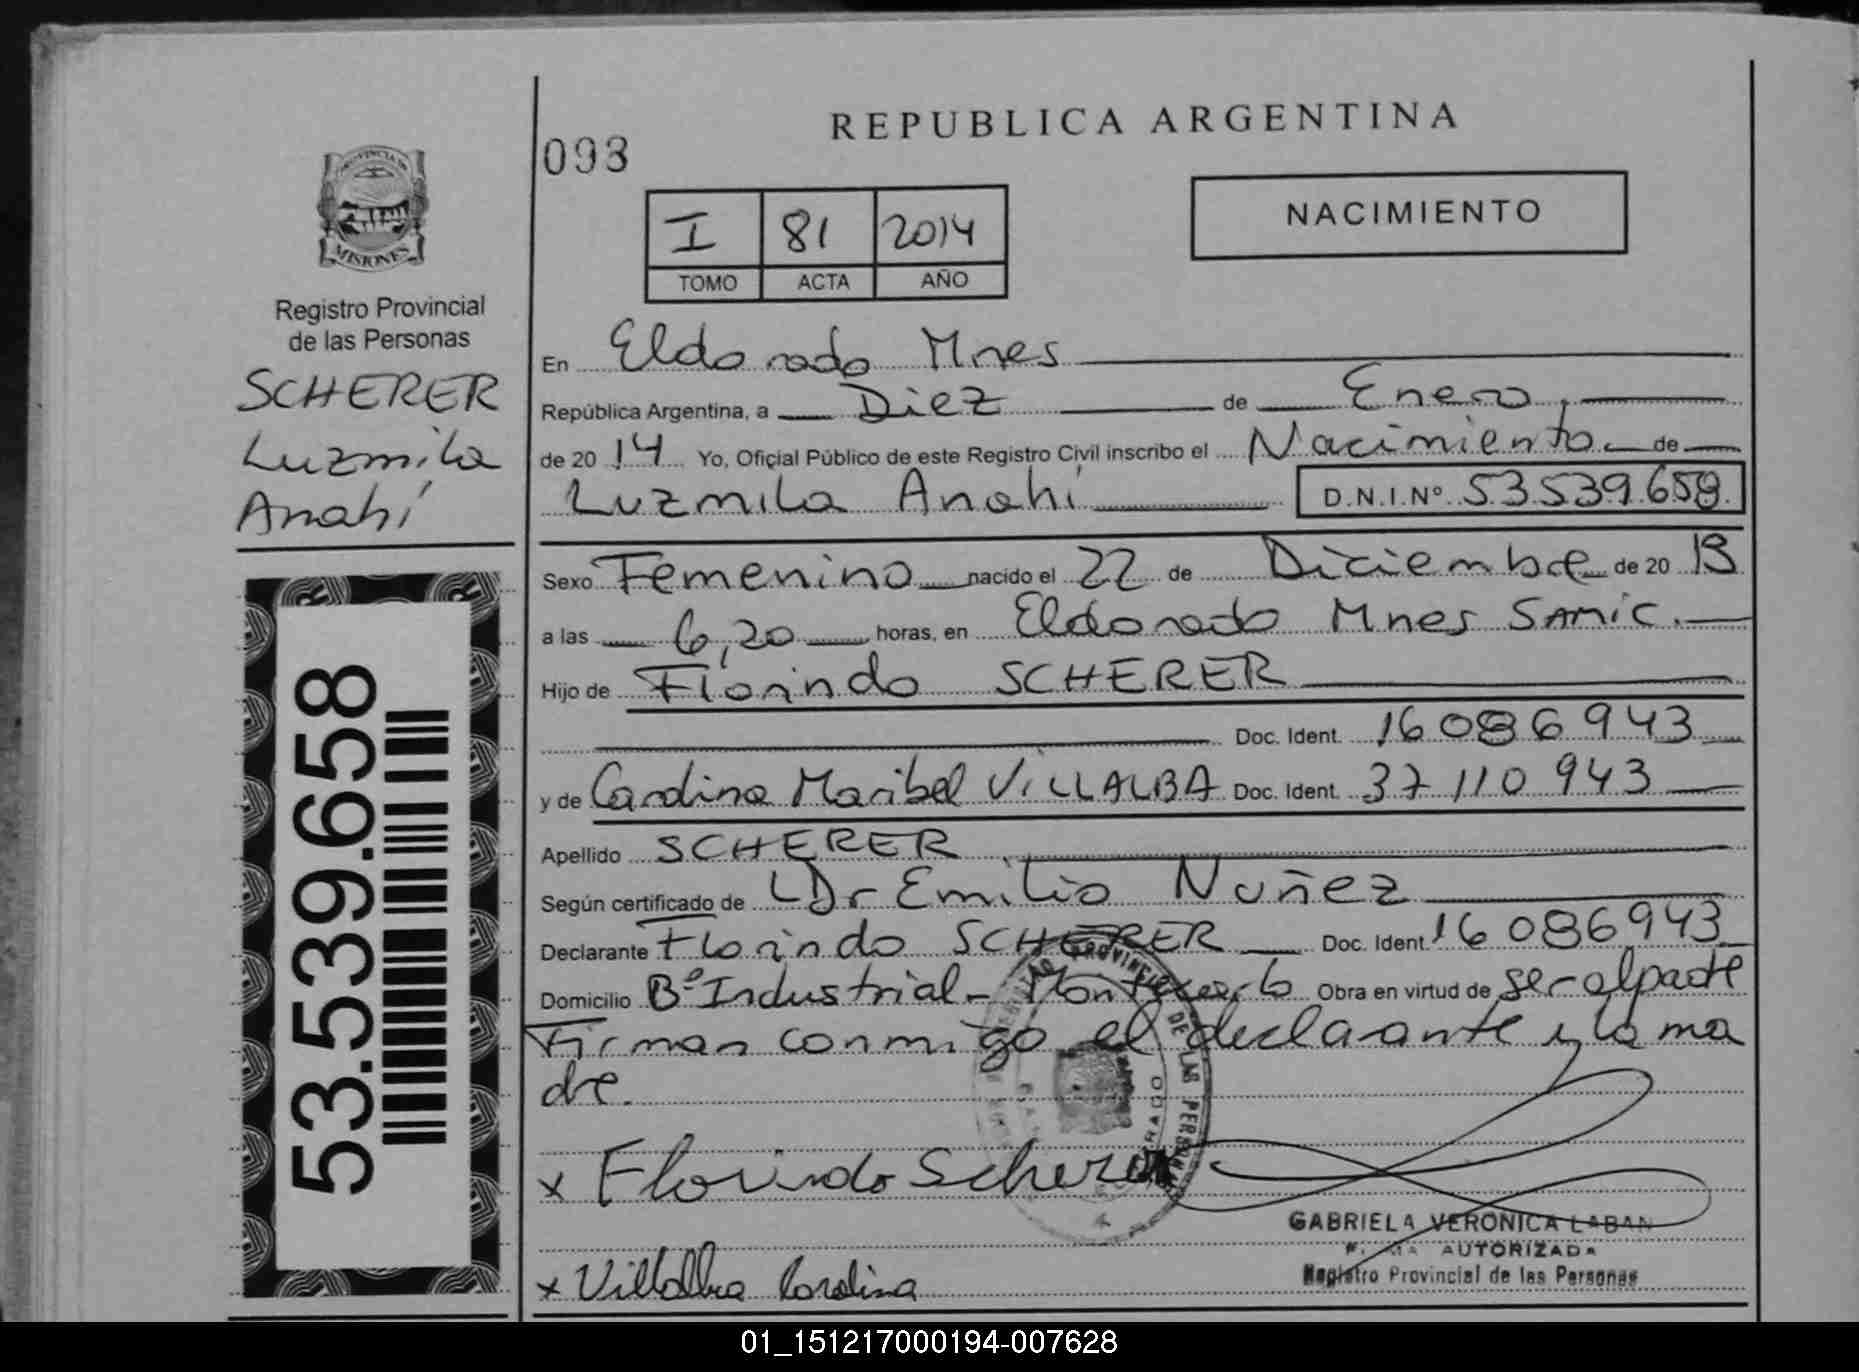 REPUBLICA ARGENTINA
093
PROVINCIA DE
MISIONES
Registro Provincial
de las Personas
SCHERER
Luzmila
Anahí
53.539.658
I 81 2014
TOMO ACTA AÑO
NACIMIENTO
En Eldorado Mnes
República Argentina, a Diez de Enero,
de 20 14 Yo, Oficial Público de este Registro Civil inscribo el Nacimiento de
Luzmila Anahí D.N.I.Nº 53539.658
Sexo Femenino nacido el 22 de Diciembre de 20 13
a las 6,20 horas, en Eldorado Mnes SAMIC.
Hijo de Florindo SCHERER
Doc. Ident. 16086943
y de Carolina Maribel VILLALBA Doc. Ident. 37110943
Apellido SCHERER
Según certificado de Dr Emilio Nuñez
Declarante Florindo SCHERER Doc. Ident 16086943
Domicilio Bº Industrial - Montecarlo Obra en virtud de ser el padre
Firman conmigo el declarante y la ma
dre.
PROVINCIAL DE LAS PERSONAS
x Florindo Scherer
GABRIELA VERONICA LABAN
AUTORIZADA
Registro Provincial de las Personas
x Villalba Carolina
01_151217000194-007628